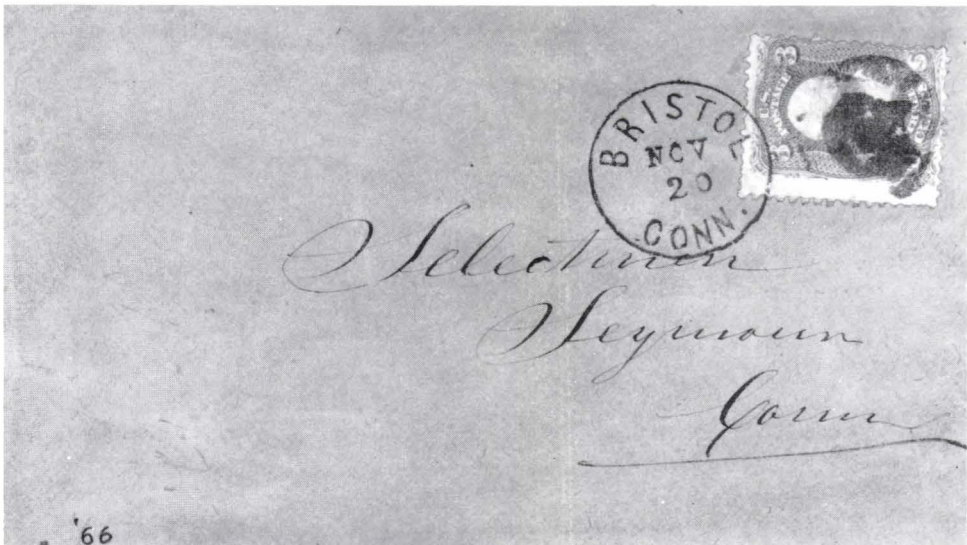 BRISTOL
NOV
20
CONN.
Selectmen
Seymour
Conn
'66